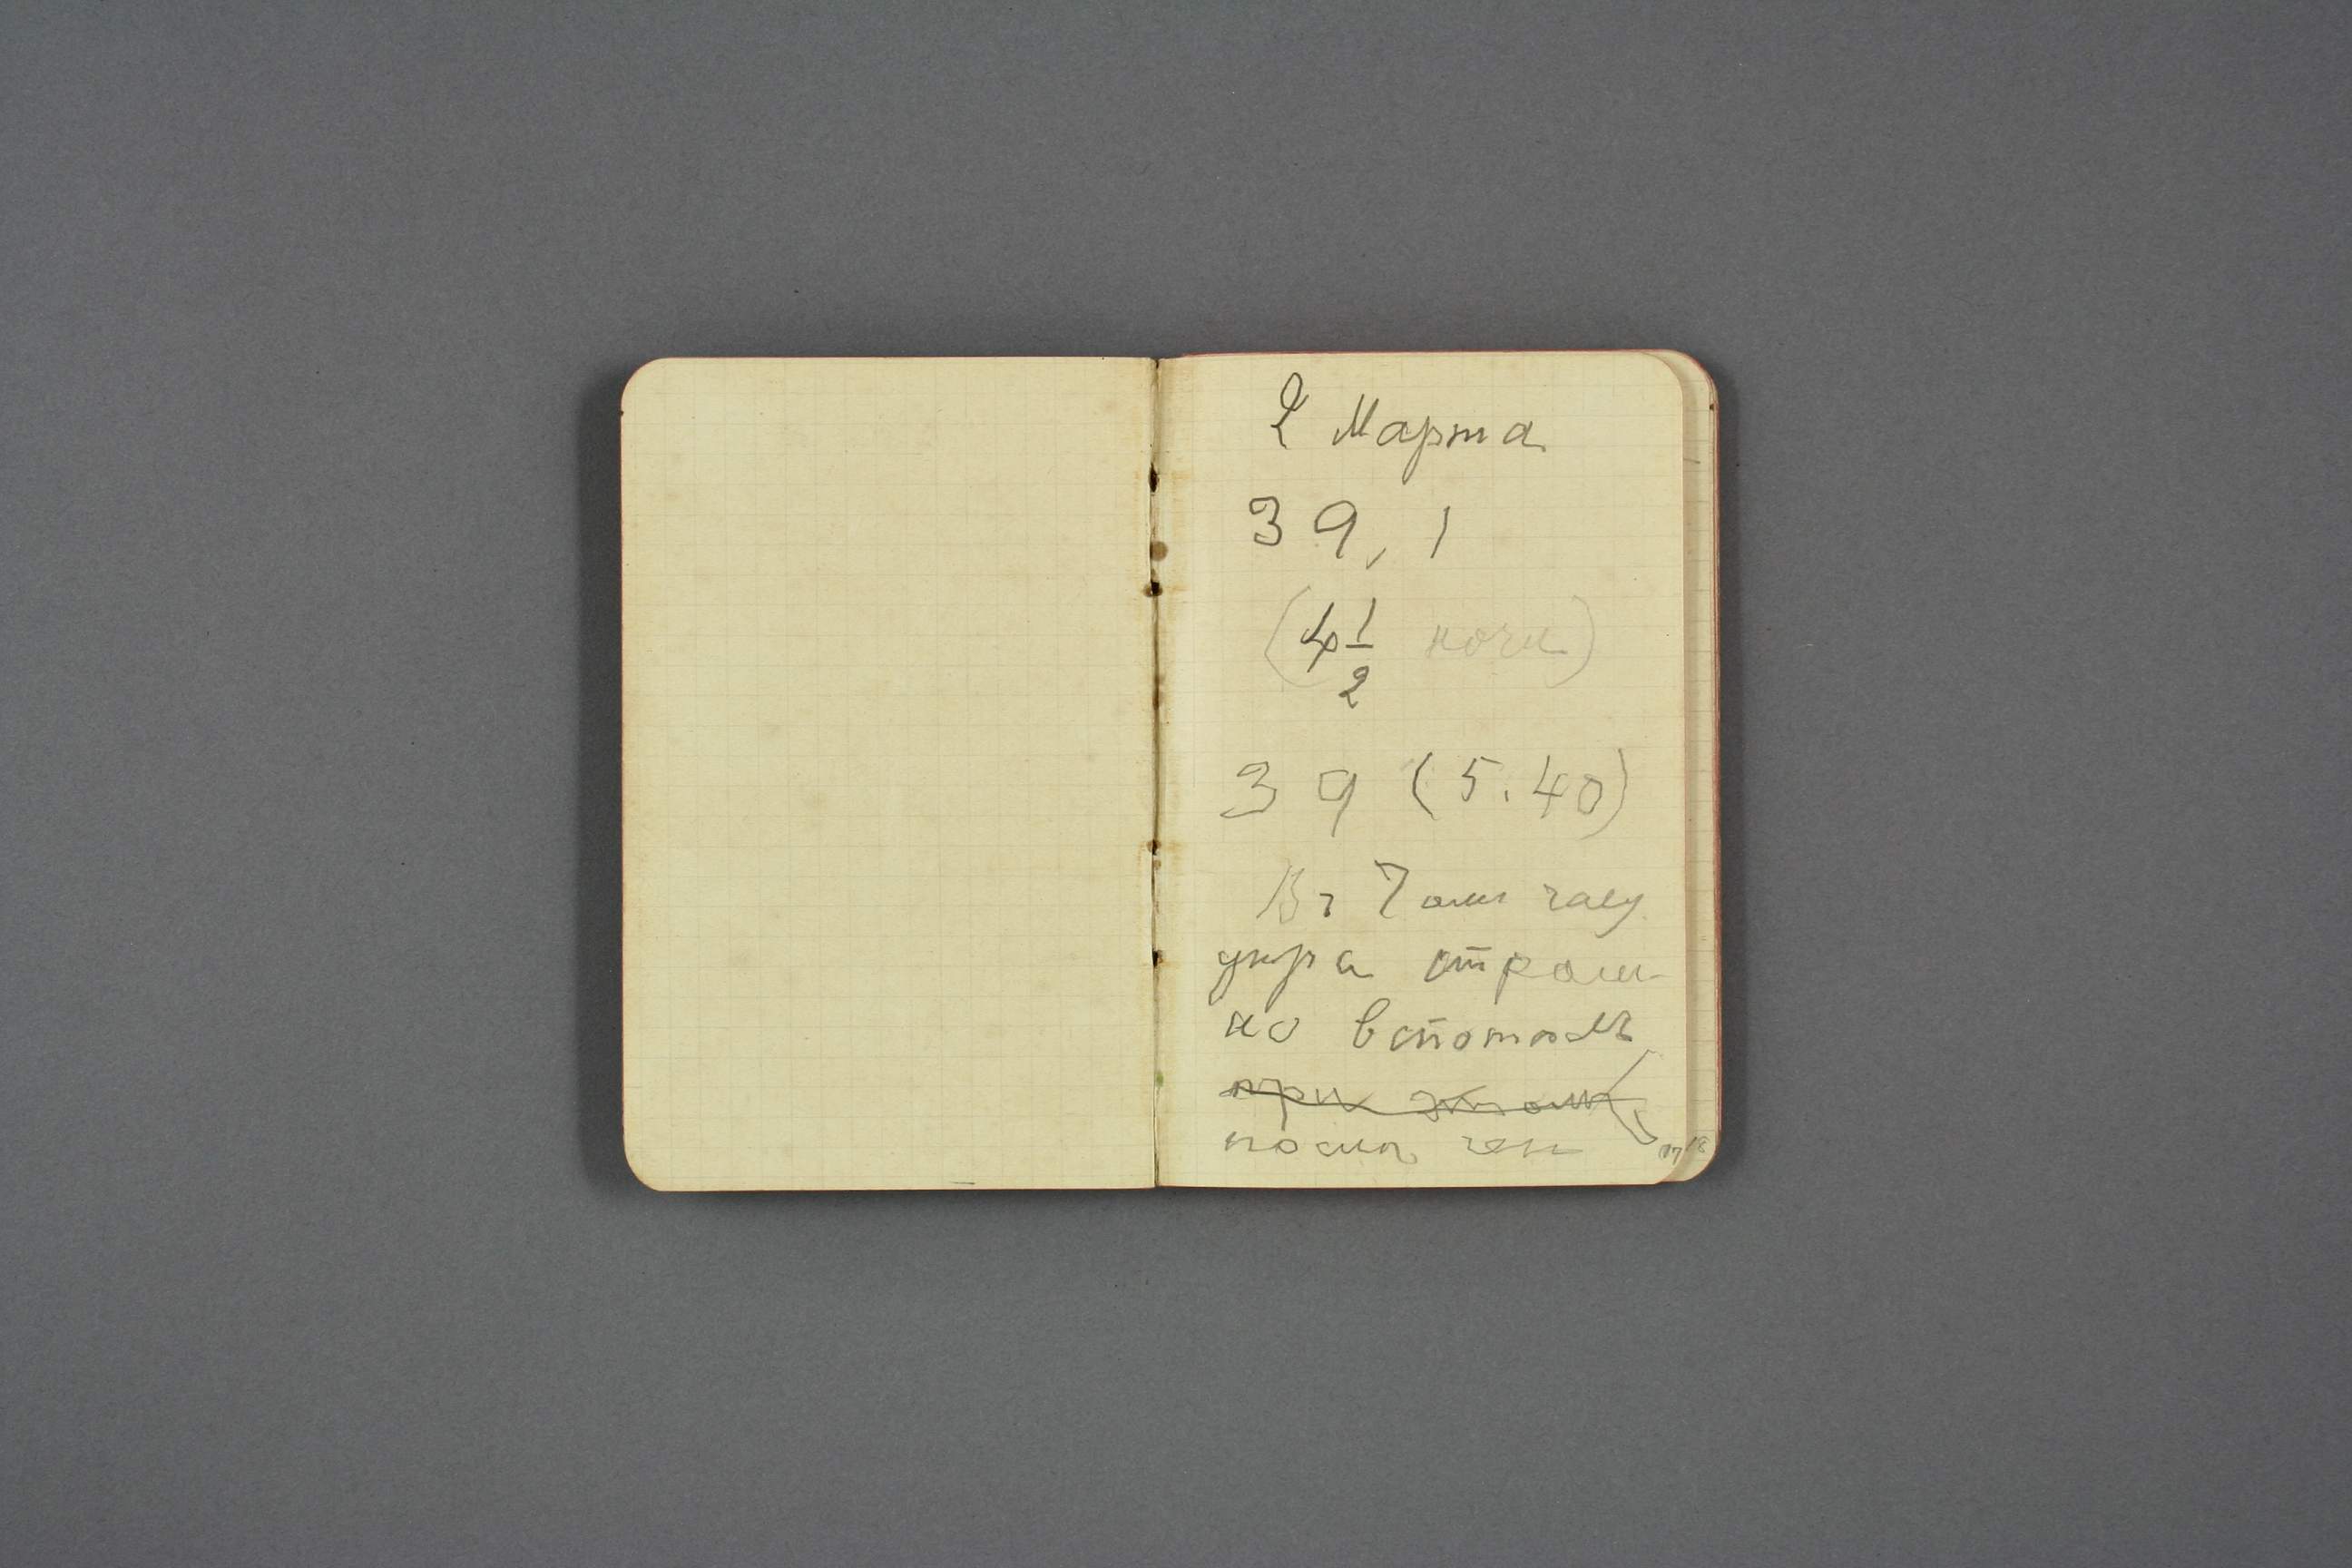 2 Марта
39,1
(4 1/2 ночи)
39 (5.40)
Въ 7омъ часу
утра страш-
но вспотѣлъ
при этомъ
послѣ
17 18